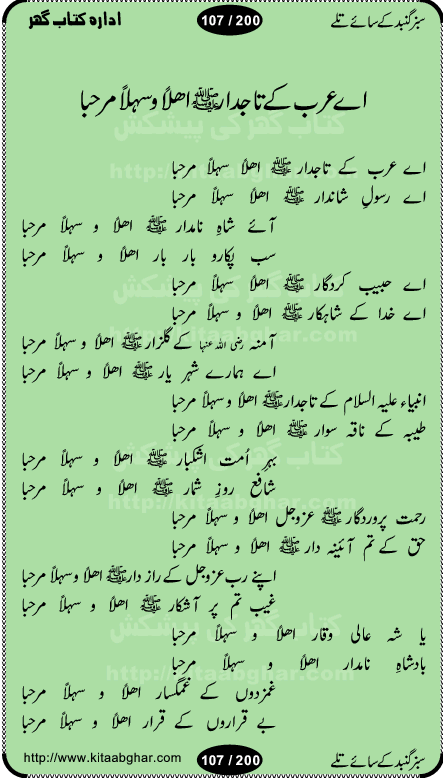 سبز گنبد کے سائے تلے 107 / 200 ادارہ کتاب گھر
اے عرب کے تاجدارﷺ اھلاً و سہلاً مرحبا
کتاب گھر کی پیشکش
http://kitaabghar.com
اے عرب کے تاجدار ﷺ اھلاً سہلاً مرحبا
اے رسولِ شاندار ﷺ اھلاً سہلاً مرحبا
آئے شاہِ نامدار ﷺ اھلاً و سہلاً مرحبا
سب پکارو بار بار اھلاً و سہلاً مرحبا
اے حبیب کردگار ﷺ اھلاً سہلاً مرحبا
اے خدا کے شاہکار ﷺ اھلاً و سہلاً مرحبا
آمنہ رضی اللہ عنہا کے گلزار ﷺ اھلاً و سہلاً مرحبا
اے ہمارے شہر یار ﷺ اھلاً و سہلاً مرحبا
انبیاء علیہ السلام کے تاجدار ﷺ اھلاً و سہلاً مرحبا
طیبہ کے ناقہ سوار ﷺ اھلاً و سہلاً مرحبا
بہرِ اُمت اشکبار ﷺ اھلاً و سہلاً مرحبا
شافع روزِ شمار ﷺ اھلاً و سہلاً مرحبا
رحمت پروردگار ﷺ عزوجل اھلاً و سہلاً مرحبا
حق کے تم آئینہ دار ﷺ اھلاً و سہلاً مرحبا
اپنے رب عزوجل کے راز دار ﷺ اھلاً و سہلاً مرحبا
غیب تم پر آشکار ﷺ اھلاً و سہلاً مرحبا
یا شہ عالی وقار اھلاً و سہلاً مرحبا
بادشاہِ نامدار اھلاً و سہلاً مرحبا
غمزدوں کے غمگسار اھلاً و سہلاً مرحبا
بے قراروں کے قرار اھلاً و سہلاً مرحبا
سبز گنبد کے سائے تلے 107 / 200 http://www.kitaabghar.com